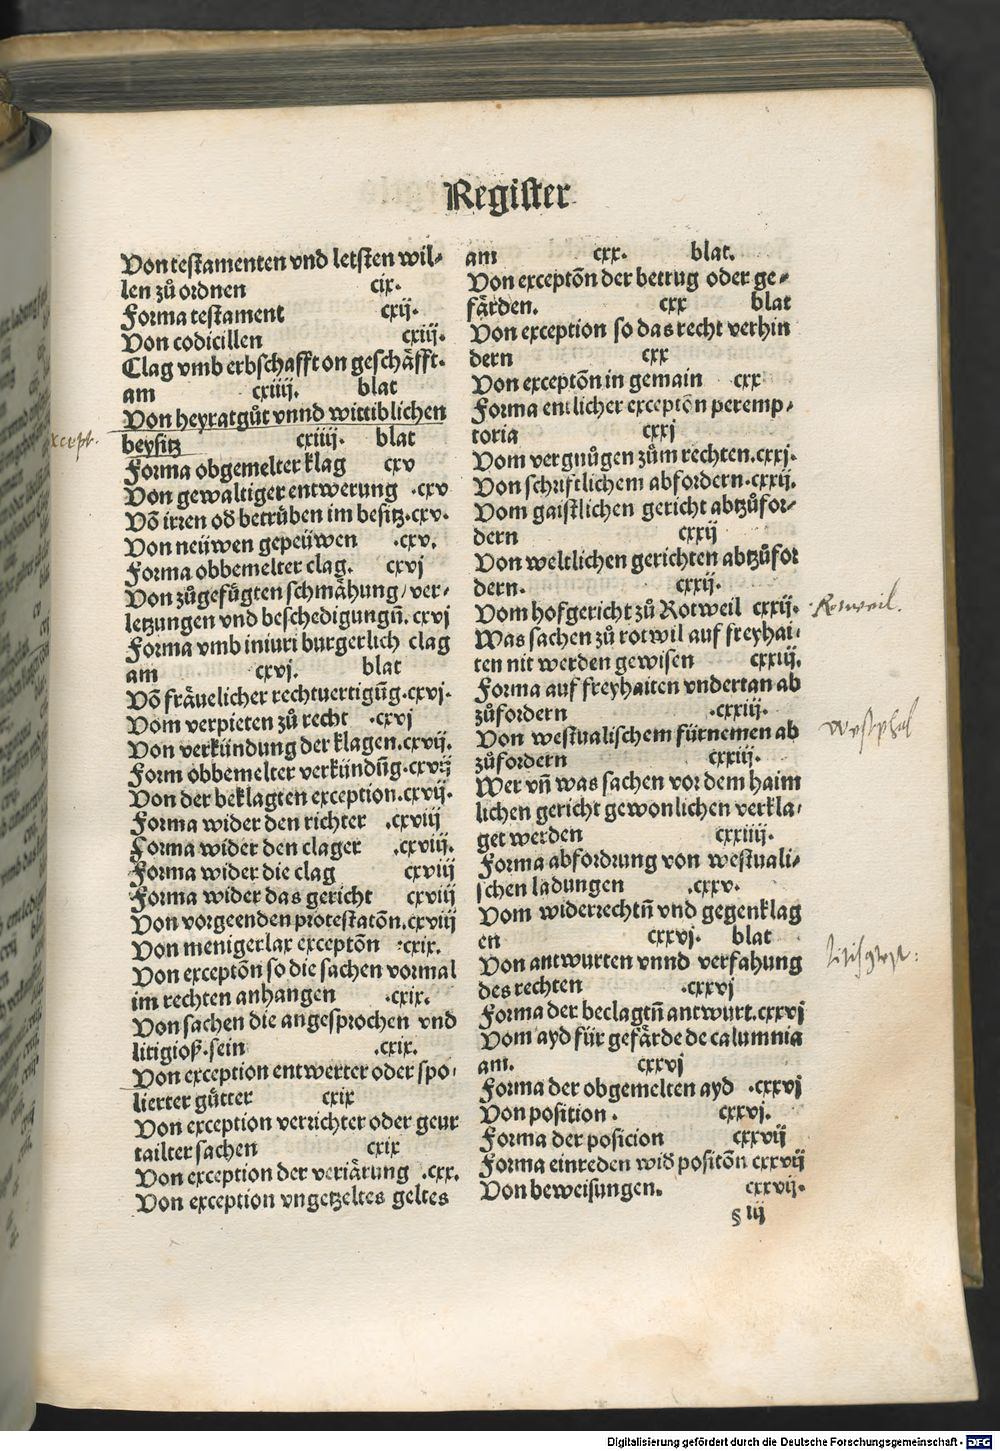 Register
Von testamenten vnd letsten wil⸗
len zuͦ ordnen cix.
Forma testament cxij.
Von codicillen cxiij.
Clag vmb erbschafft on geschaͤfft.
am cxiiij. blat
Von heyratguͦt vnnd wittiblichen
beysitz cxiiij. blat
Forma obgemelter klag cxv
Von gewaltiger entwerung .cxv
Võ irren od betruͤben im besitz.cxv.
Von neüwen gepeüwen .cxv.
Forma obbemelter clag. cxvj
Von zuͦgefuͤgten schmaͤhung/ ver⸗
letzungen vnd beschedigungñ. cxvj
Forma vmb iniuri burgerlich clag
am cxvj. blat
Võ fraͤuelicher rechtuertigũg.cxvj.
Vom verpieten zuͦ recht .cxvj
Von verkündung der klagen.cxvij.
Form obbemelter verkündũg.cxvij
Von der beklagten exception.cxvij.
Forma wider den richter .cxviij
Forma wider den clager .cxviij.
Forma wider die clag cxviij
Forma wider das gericht cxviij
Von vorgeenden protestatõn.cxviij
Von menigerlay exceptõn .cxix.
Von exceptõn so die sachen vormal
im rechten anhangen .cxix.
Von sachen die angesprochen vnd
litigioß.sein .cxix.
Von exception entwerter oder spo⸗
lierter guͤtter cxix
Von exception verrichter oder geur
tailter sachen cxix
Von exception der veriaͤrung .cxx.
Von exception vngetzeltes geltes
am cxx. blat.
Von exceptõn der betrug oder ge⸗
faͤrden. cxx blat
Von exception so das recht verhin
dern cxx
Von exceptõn in gemain cxx
Forma entlicher exceptõn peremp⸗
toria cxxj
Vom vergnuͤgen zuͦm rechten.cxxj.
Von schriftlichem abfordern.cxxij.
Vom gaistlichen gericht abtzuͦfor⸗
dern cxxij
Von weltlichen gerichten abtzuͦfor
dern. cxxij.
Vom hofgericht zuͦ Rotweil cxxij.
Was sachen zuͦ rotwil auf freyhai⸗
ten nit werden gewisen cxxiij.
Forma auf freyhaiten vndertan ab
zuͦfordern .cxxiij.
Von westualischem fürnemen ab
zuͦfordern cxxiij.
Wer vñ was sachen vor dem haim
lichen gericht gewonlichen verkla⸗
get werden cxxiiij.
Forma abfordrung von westuali⸗
schen ladungen .cxxv.
Vom widerrechtñ vnd gegenklag
en cxxvj. blat
Von antwurten vnnd verfahung
des rechten .cxxvj
Forma der beclagtñ antwurt.cxxvj
Vom ayd für gefaͤrde de calumnia
am. cxxvj
Forma der obgemelten ayd .cxxvj
Von position. cxxvj.
Forma der posicion cxxvij
Forma einreden wid positõn cxxvij
Von beweisungen. cxxvij.
§ iij
Rotweil.
Westphal
Digitalisierung gefördert durch die Deutsche Forschungsgemeinschaft - DFG